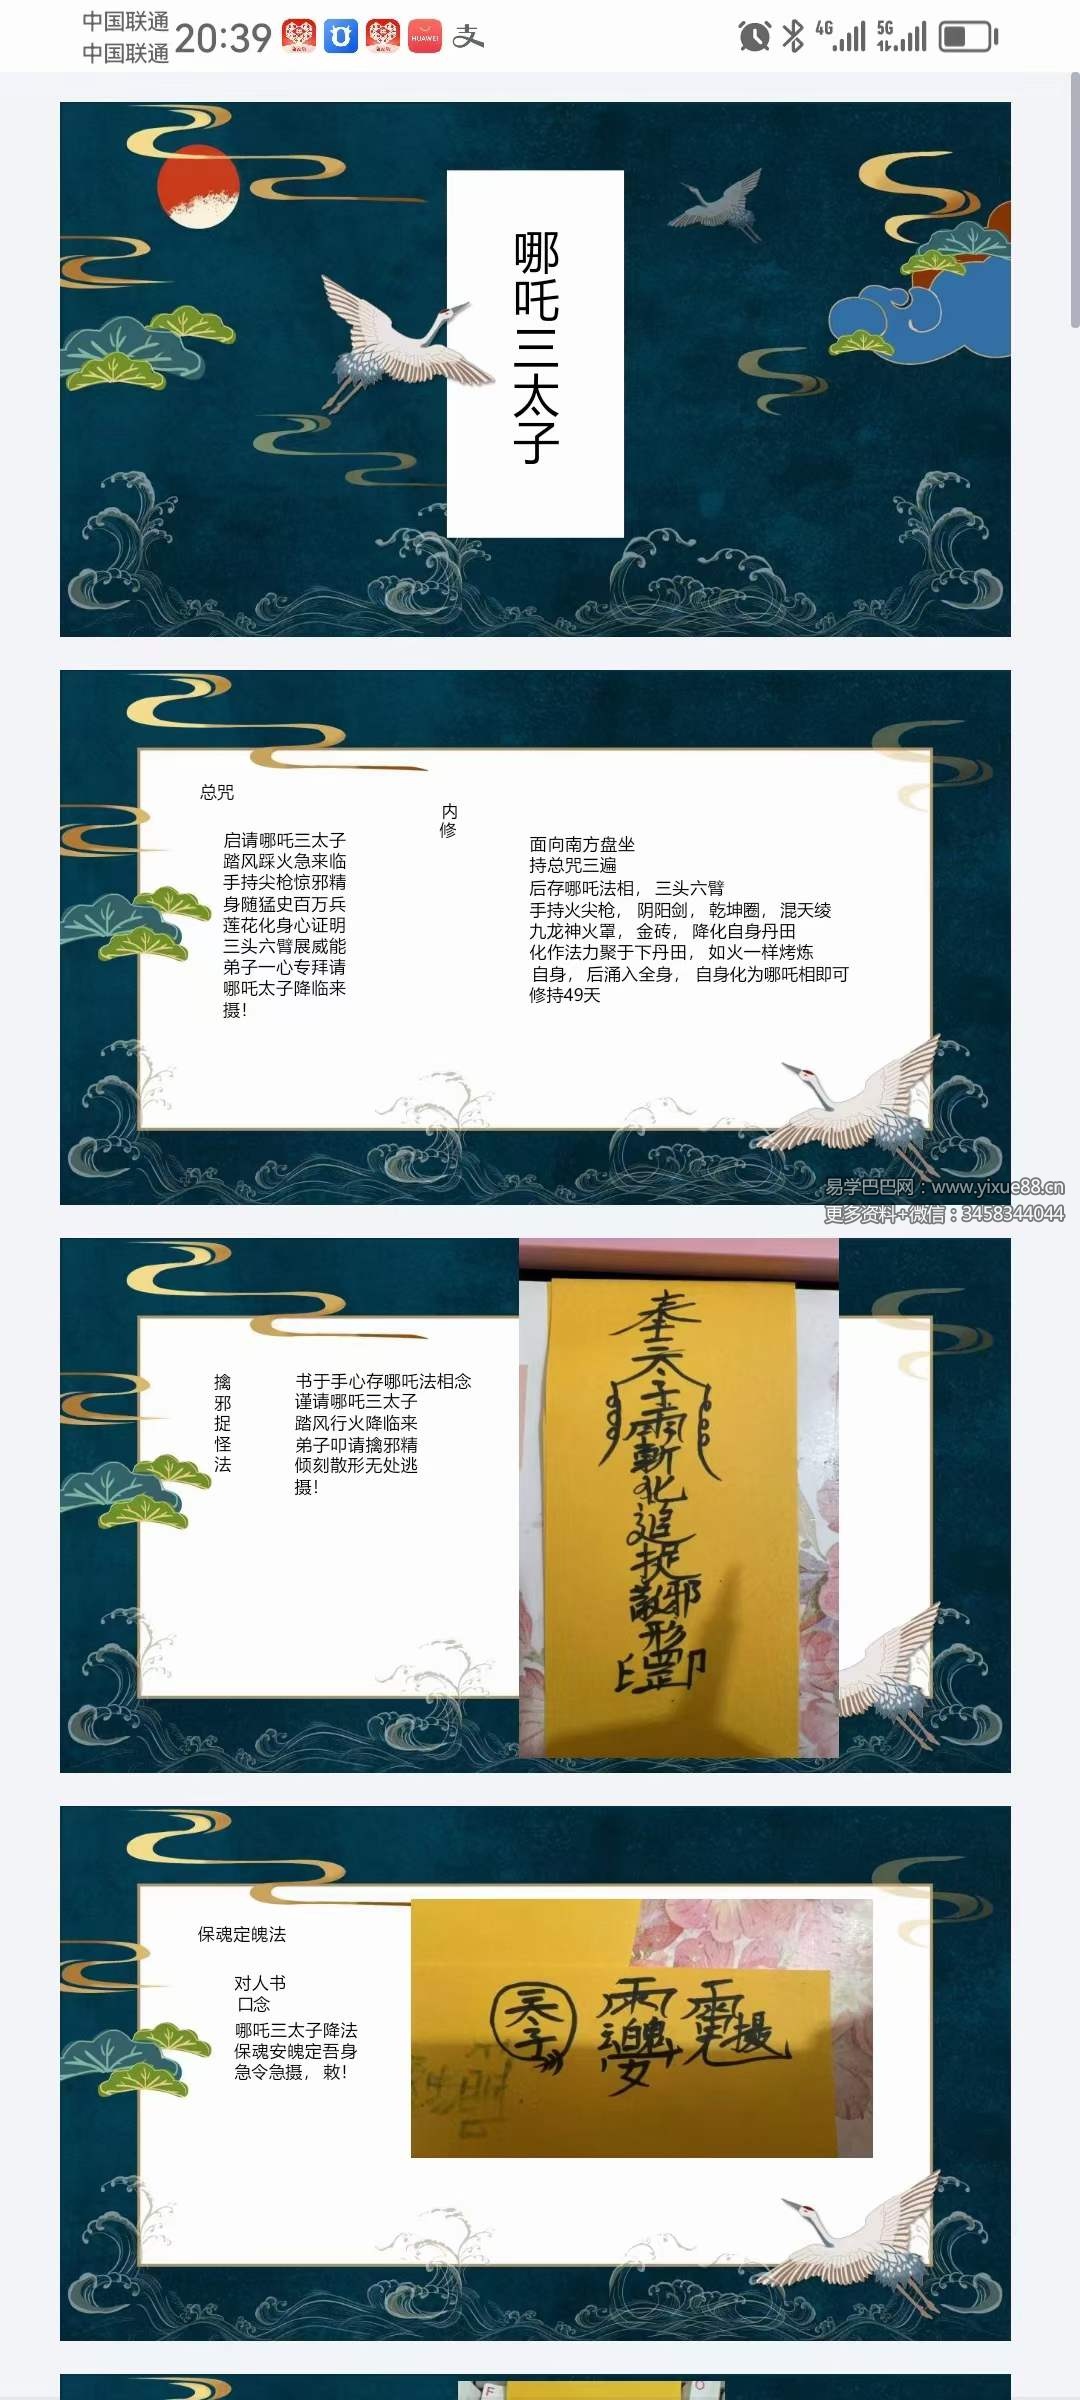 中国联通
中国联通
20:39
HUAWEI
4G
5G
哪吒三太子
总咒
启请哪吒三太子
踏风踩火急来临
手持尖枪惊邪精
身随猛史百万兵
莲花化身心证明
三头六臂展威能
弟子一心专拜请
哪吒太子降临来
摄！
内修
面向南方盘坐
持总咒三遍
后存哪吒法相，三头六臂
手持火尖枪，阴阳剑，乾坤圈，混天绫
九龙神火罩，金砖，降化自身丹田
化作法力聚于下丹田，如火一样烤炼
自身，后涌入全身，自身化为哪吒相即可
修持49天
易学巴巴网：www.yixue88.cn
更多资料+微信：3458344044
擒邪捉怪法
书于手心存哪吒法相念
谨请哪吒三太子
踏风行火降临来
弟子叩请擒邪精
倾刻散形无处逃
摄！
奉
天
子
斬
化
追
捉
邪
形
保魂定魄法
对人书
口念
哪吒三太子降法
保魂安魄定吾身
急令急摄，敕！
F
O